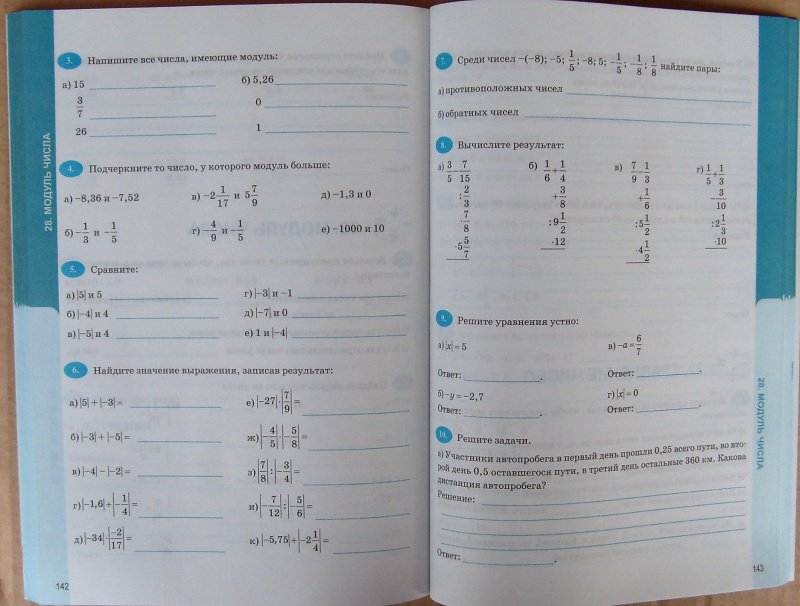 3. Напишите все числа, имеющие модуль:
а) 15 б) 5,26
3/7 0
26 1
4. Подчеркните то число, у которого модуль больше:
а) −8,36 и −7,52 в) −2 1/17 и 5 7/9 д) −1,3 и 0
б) −1/3 и −1/5 г) −4/9 и −1/5 е) −1000 и 10
5. Сравните:
а) |5| и 5 г) |−3| и −1
б) |−4| и 4 д) |−7| и 0
в) |−5| и 4 е) 1 и |−4|
6. Найдите значение выражения, записав результат:
а) |5| + |−3| = е) |−27| · |7/9| =
б) |−3| + |−5| = ж) |−4/5| · |−5/8| =
в) |−4| − |−2| = з) |7/8| : |−3/4| =
г) |−1,6| + |−1/4| = и) |−7/12| : |−5/6| =
д) |−34| · |−2/17| = к) |−5,75| + |−2 1/4| =
142
28. МОДУЛЬ ЧИСЛА
7. Среди чисел −(−8); −5; 1/5; −8; 5; −1/5; −1/8; 1/8 найдите пары:
а) противоположных чисел
б) обратных чисел
8. Вычислите результат:
а) 3/5 · 7/15 б) 1/6 + 1/4 в) 7/9 − 1/3 г) 1/5 + 1/3
: 2/3 + 3/8 + 1/6 − 3/10
· 7/8 : 9 1/2 : 5 1/2 : 2 1/3
· 5 5/7 · 12 · 4 1/2 · 10
9. Решите уравнения устно:
а) |x| = 5 в) −a = 6/7
Ответ: . Ответ: .
б) −y = −2,7 г) |x| = 0
Ответ: . Ответ: .
10. Решите задачи.
а) Участники автопробега в первый день прошли 0,25 всего пути, во вто-
рой день 0,5 оставшегося пути, в третий день остальные 360 км. Какова
дистанция автопробега?
Решение:
Ответ: .
143
28. МОДУЛЬ ЧИСЛА